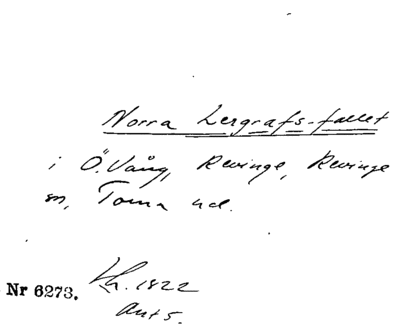 Norra Lergrafs-fallet
i Ö. Vång, Revinge, Revinge
sn, Torna hd.
Nr 6273. Kh. 1822
ant 5.